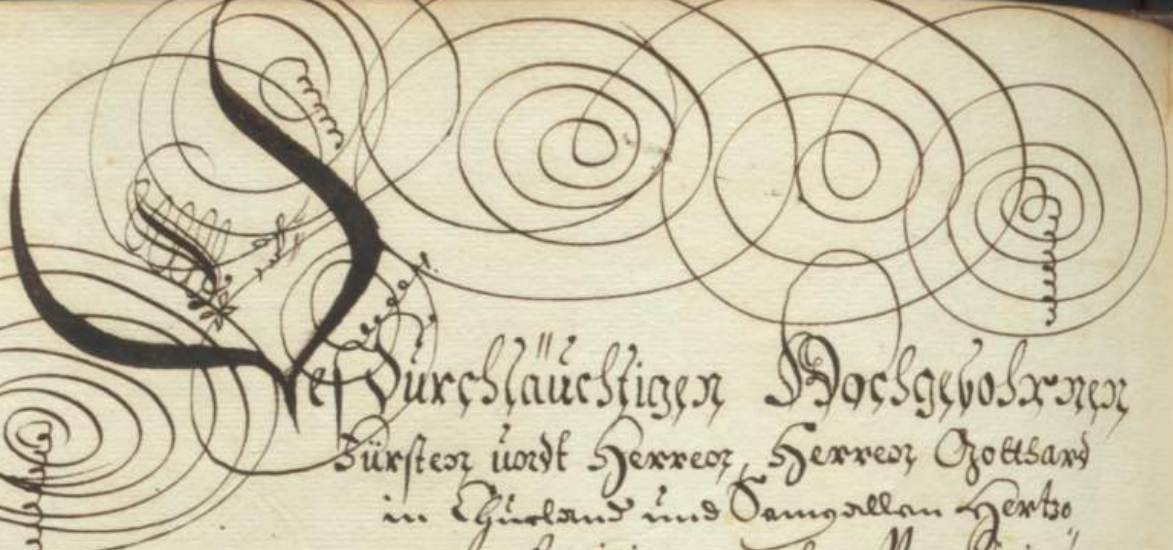 Des Durchläuchtigen Hochgebohrnen
Fürsten undt Herren, Herren Gotthard
in Churland und Semgallen Hertzo